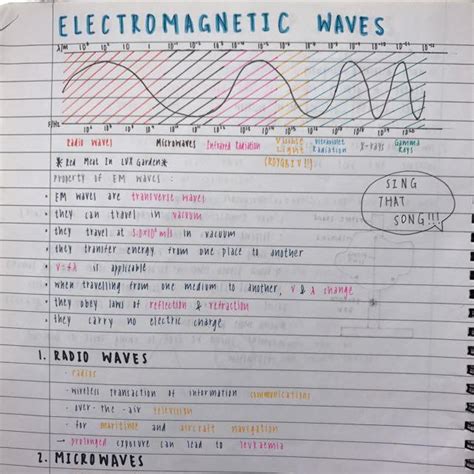 ELECTROMAGNETIC WAVES
Radio Waves Microwaves Infrared Radiation Visible Light Ultraviolet Radiation X-rays Gamma Rays
(ROYGBIV!!)
* Red Meat In LUX Garden *
Property of EM Waves :
SING THAT SONG!!!
• EM waves are transverse waves
• they can travel in vacuum
• they travel at 3.0×10⁸ m/s in vacuum
• they transfer energy from one place to another
• v=fλ is applicable
• when travelling from one medium to another, v & λ change
• they obey laws of reflection & refraction
• they carry no electric charge
1. RADIO WAVES
- radios
- wireless transaction of information communications
- over-the-air television
- for maritime and aircraft navigation
→ prolonged exposure can lead to leukaemia
2. MICROWAVES